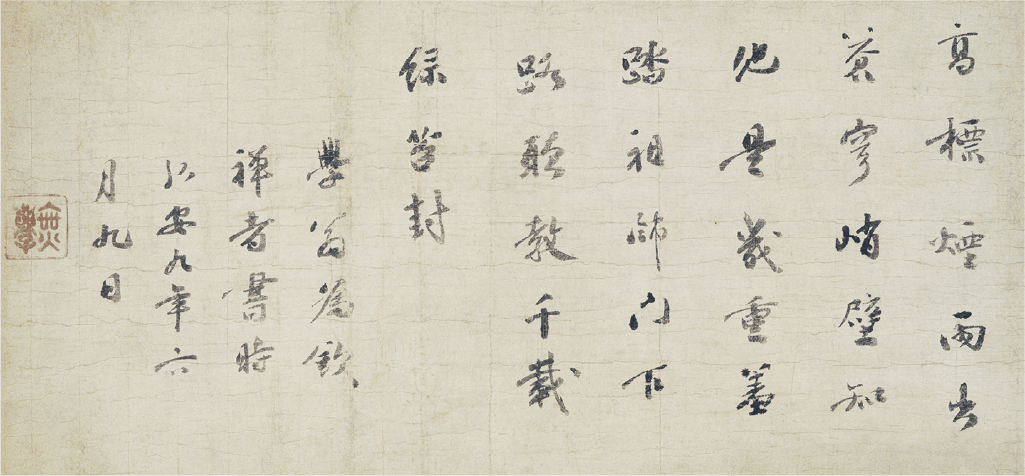 高標煙雨出
蒼穹峭壁知
他是幾重蓋
踏祖師門下
路教千載
緑苔封
學翁為欽
禪者書時
弘安九年六
月九日
無學